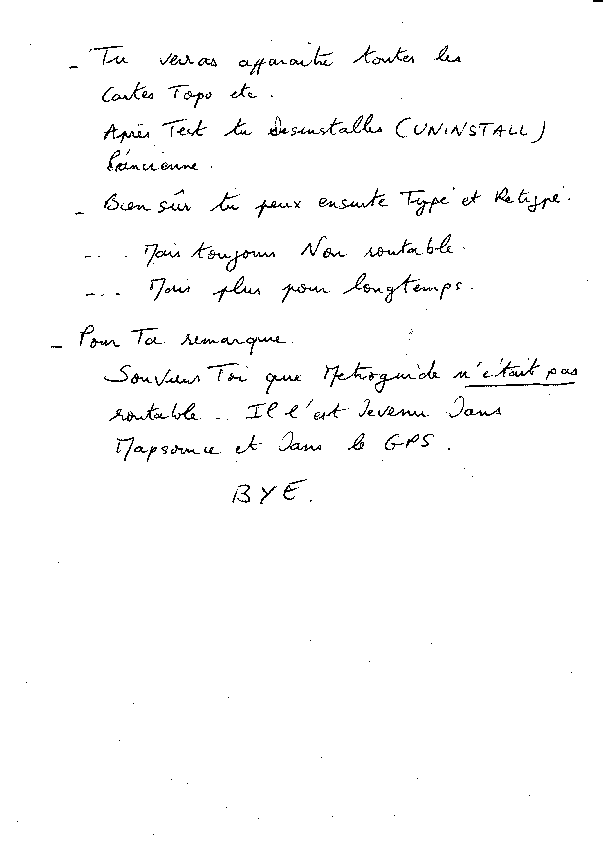 - Tu verras apparaitre toutes les
Cartes Topo etc.
Après Test tu Desinstalles (UNINSTALL)
l'ancienne.
- Bien sûr tu peux ensuite Typé et Retypé.
... Mais toujours Non routable.
... Mais plus pour longtemps.
- Pour Ta remarque.
Souviens Toi que Metroguide n'était pas
routable.. Il l'est devenu Dans
Mapsource et Dans le GPS.
BYE.